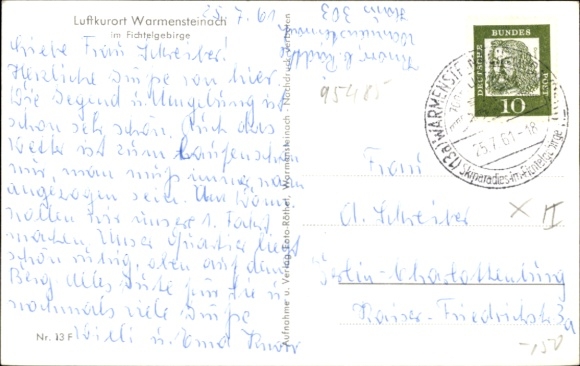 Luftkurort Warmensteinach
im Fichtelgebirge
Liebe Frau Schreiber!
Herzliche Grüße von hier.
Die Gegend u. Umgebung ist
schon sehr schön. Auch das
Wetter ist zum
nur, man muß immer
angezogen sein.
wollen wir unsere 1. Fahrt
machen. Unser Quartier liegt
schön ruhig, oben auf dem
Berg. Alles Gute für Sie u.
nochmals viele Grüße
Willi u. Erna Knorr
Nr. 13 F
Aufnahme u. Verlag Foto-Röthel, Warmensteinach - Nachdruck verboten
Knorr b.
Warmensteinach
Hain 303
95485
DEUTSCHE BUNDESPOST
10
(13a) WARMENSTEINACH
25.7.61-18
Skiparadies im Fichtelgebirge
Frau
A. Schreiber
X II
Berlin-Charlottenburg
Kaiser-Friedrichstr. 3a
-,50